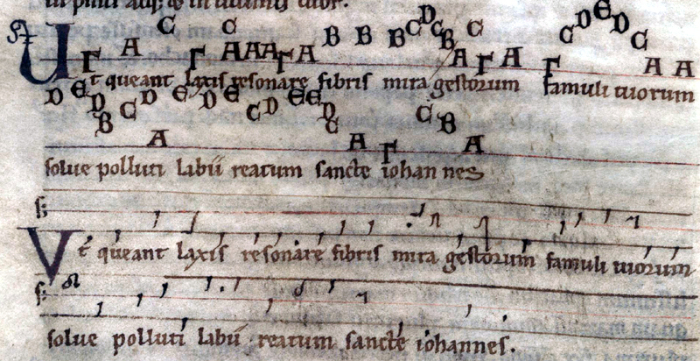 Γ A C Γ C A A A Γ A B B B C D C B A C Γ A Γ C D E D C A A
Ut queant laxis resonare fibris mira gestorum famuli tuorum
D E D B C D A E D E C D E E D C A Γ C B A
solue polluti labii reatum sancte iohannes
Vt queant laxis resonare fibris mira gestorum famuli tuorum
solue polluti labii reatum sancte iohannes.